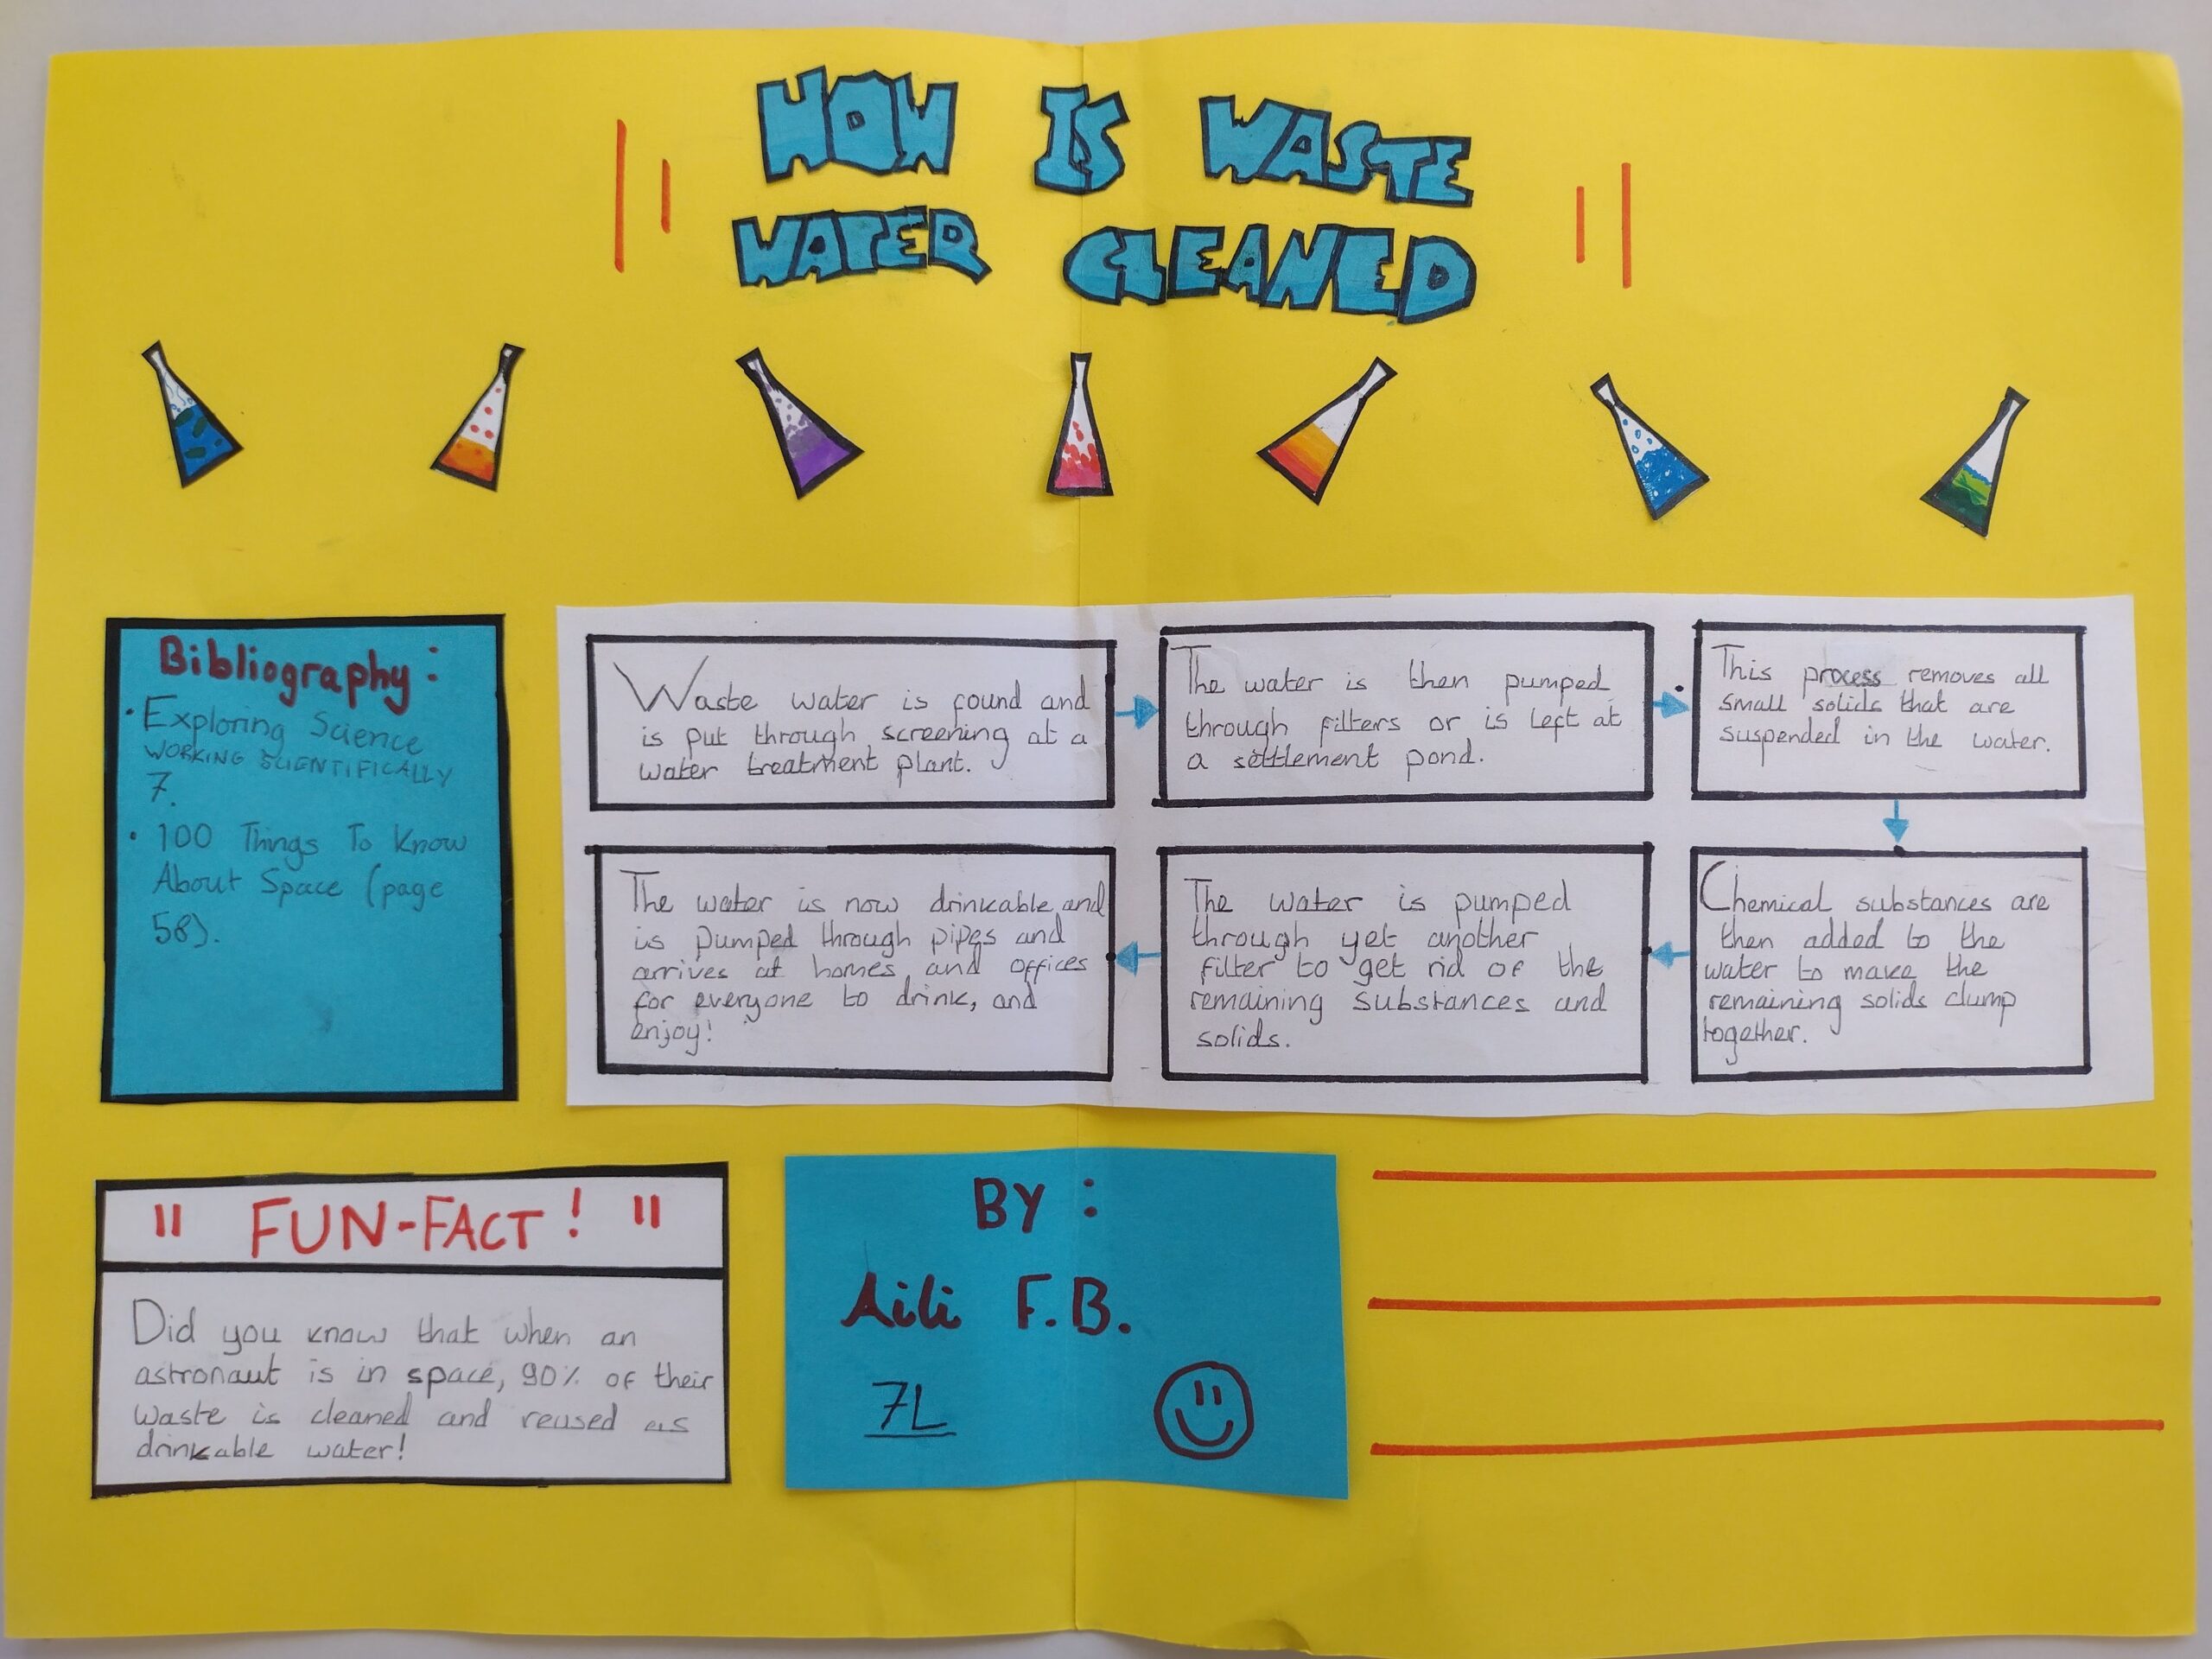 HOW IS WASTE
WATER CLEANED
Bibliography:
• Exploring Science
WORKING SCIENTIFICALLY
7.
• 100 Things To Know
About Space (page
58).
Waste water is found and
is put through screening at a
water treatment plant.
The water is then pumped
through filters or is left at
a settlement pond.
This process removes all
small solids that are
suspended in the water.
Chemical substances are
then added to the
water to make the
remaining solids clump
together.
The water is pumped
through yet another
filter to get rid of the
remaining substances and
solids.
The water is now drinkable and
is pumped through pipes and
arrives at homes and offices
for everyone to drink, and
enjoy!
" FUN-FACT! "
Did you know that when an
astronaut is in space, 90% of their
waste is cleaned and reused as
drinkable water!
BY :
Aili F.B.
7L